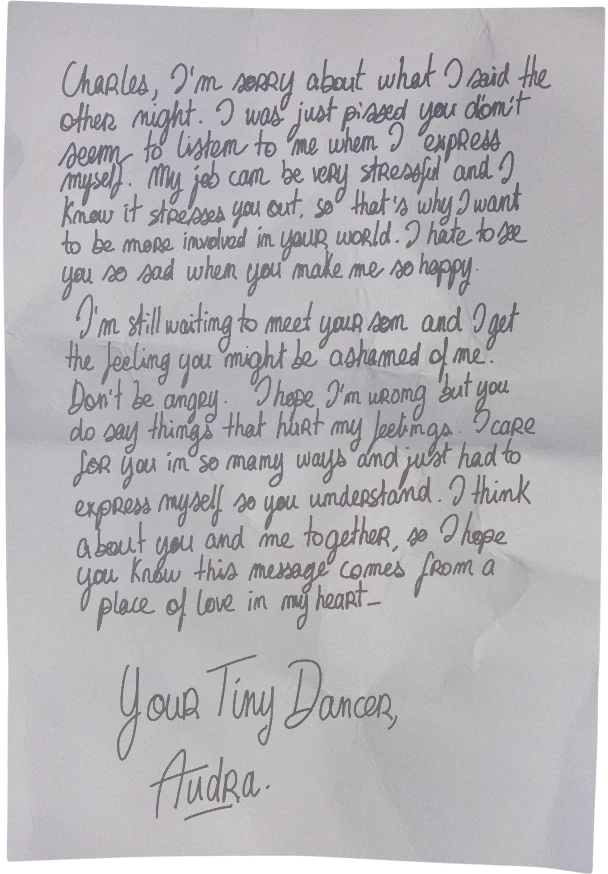 Charles, I'm sorry about what I said the
other night. I was just pissed you don't
seem to listen to me when I express
myself. My job can be very stressful and I
know it stresses you out, so that's why I want
to be more involved in your world. I hate to see
you so sad when you make me so happy.
I'm still waiting to meet your son and I get
the feeling you might be ashamed of me.
Don't be angry. I hope I'm wrong but you
do say things that hurt my feelings. I care
for you in so many ways and just had to
express myself so you understand. I think
about you and me together, so I hope
you know this message comes from a
place of love in my heart_
Your Tiny Dancer,
Audra.